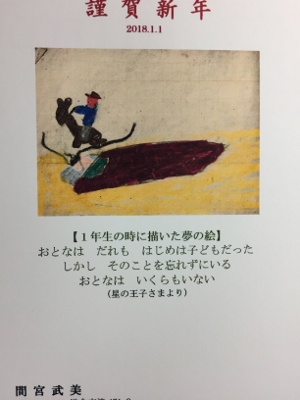 謹賀新年
2018.1.1
【1年生の時に描いた夢の絵】
おとなは　だれも　はじめは子どもだった
しかし　そのことを忘れずにいる
おとなは　いくらもいない
(星の王子さまより)
間宮武美